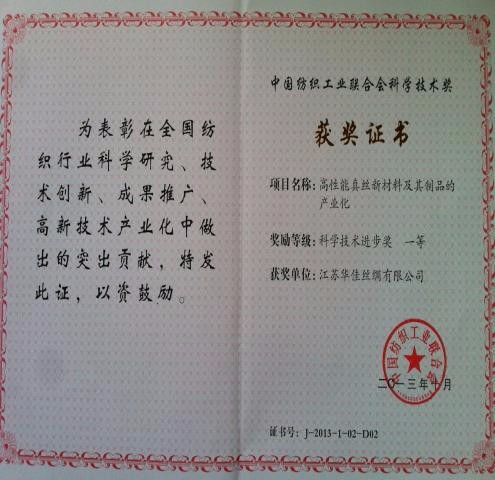 为表彰在全国纺
织行业科学研究、技
术创新、成果推广、
高新技术产业化中做
出的突出贡献，特发
此证，以资鼓励。
中国纺织工业联合会科学技术奖
获奖证书
项目名称：高性能真丝新材料及其制品的
产业化
奖励等级：科学技术进步奖 一等
获奖单位：江苏华佳丝绸有限公司
中国纺织工业联合会
二〇一三年十月
证书号：J-2013-1-02-D02